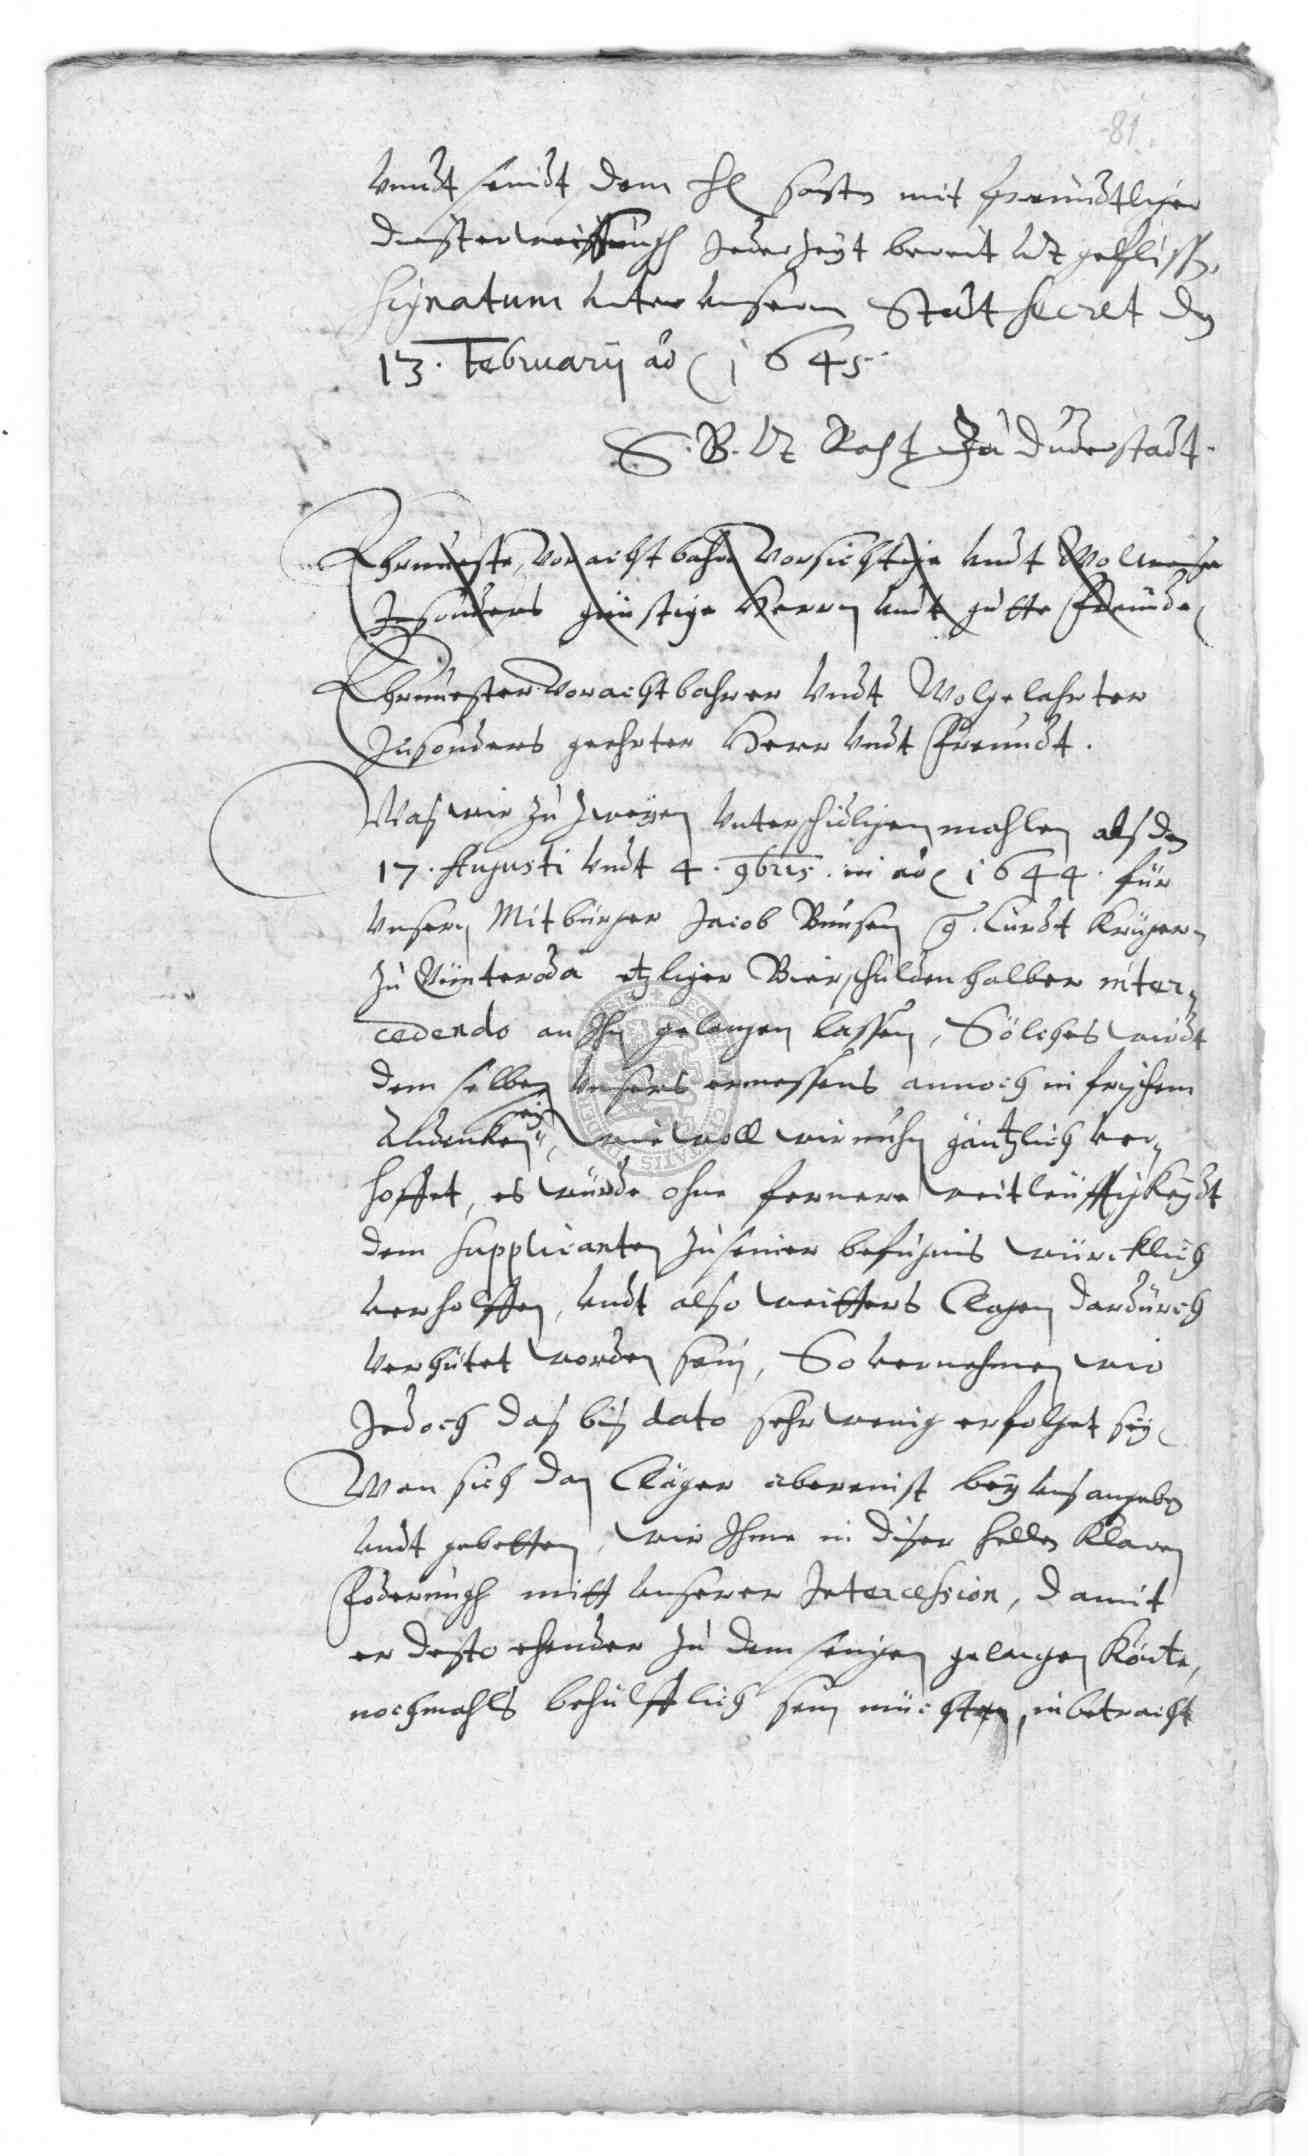 81.
Vnndt seindt dem H sostn mit freundtlicher
diensterweissungh Jederzeyt bereit Vt gefliss.
Signatum unter unserm Statt Secret den
13. Februarij ao 1645.
S. B. Vt Raht Zu Duderstadt.
Ehrnueste, Vorachtbahr Vorsichtige undt Wollweise
Jnsonders günstige Herren undt gutte Freunde
Ehrnuester Vorachtbahrer Undt Wolgelahrter
Jnsonders geehrter Herr Undt Freundt.
Was wir zu zweyen Unterschidlichen mahlen als den
17. Augusti Undt 4. 9bris. in ao 1644. für
Unsern Mitbürger Jacob Bunsen Curdt Krügern
zu etzlicher Bierschulden halber inter-
cedendo an Jhn gelangen lassen, Solches wirdt
dem selben Unsers ermessens annoch in frischem
Andenken sein, wie woll wir nuhn gäntzlich ver-
hoffet, es würde ohne fernere weitleuffigkeydt
dem Supplicanten zu seiner befugnis würcklich
verholffen, undt also weitters Clagen dardurch
Verhütet worden sein, So vernehmen wir
Jedoch das bis dato sehr wenig erfolget sey
Wan sich dan Cläger abereinst bey uns angeben
undt gebetten, wir Jhme in diser hellen klaren
Foderungh mitt unserer Jntercession, damit
er desto ehender zu dem seinigen gelangen könte,
nochmahls behülfflich sein müchten, in betracht